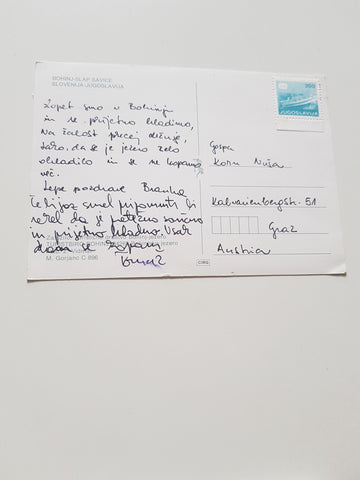 BOHINJ-SLAP SAVICE
SLOVENIJA-JUGOSLAVIJA
Zopet smo v Bohinju
in se prijetno hladimo,
Na žalost precej dežuje,
tako, da se je jezero zelo
ohladilo in se ne kopamo
več.
Lepe pozdrave Branka
Če bi jaz smel pripomniti bi
rekel da je potrebno sončno
in prijetno hladno. Vsaj
M. Gorjanc C 896
CIRG
JUGOSLAVIJA
Gospa
Korn Nuša
Kalvarienbergstr. 51
Graz
Austria